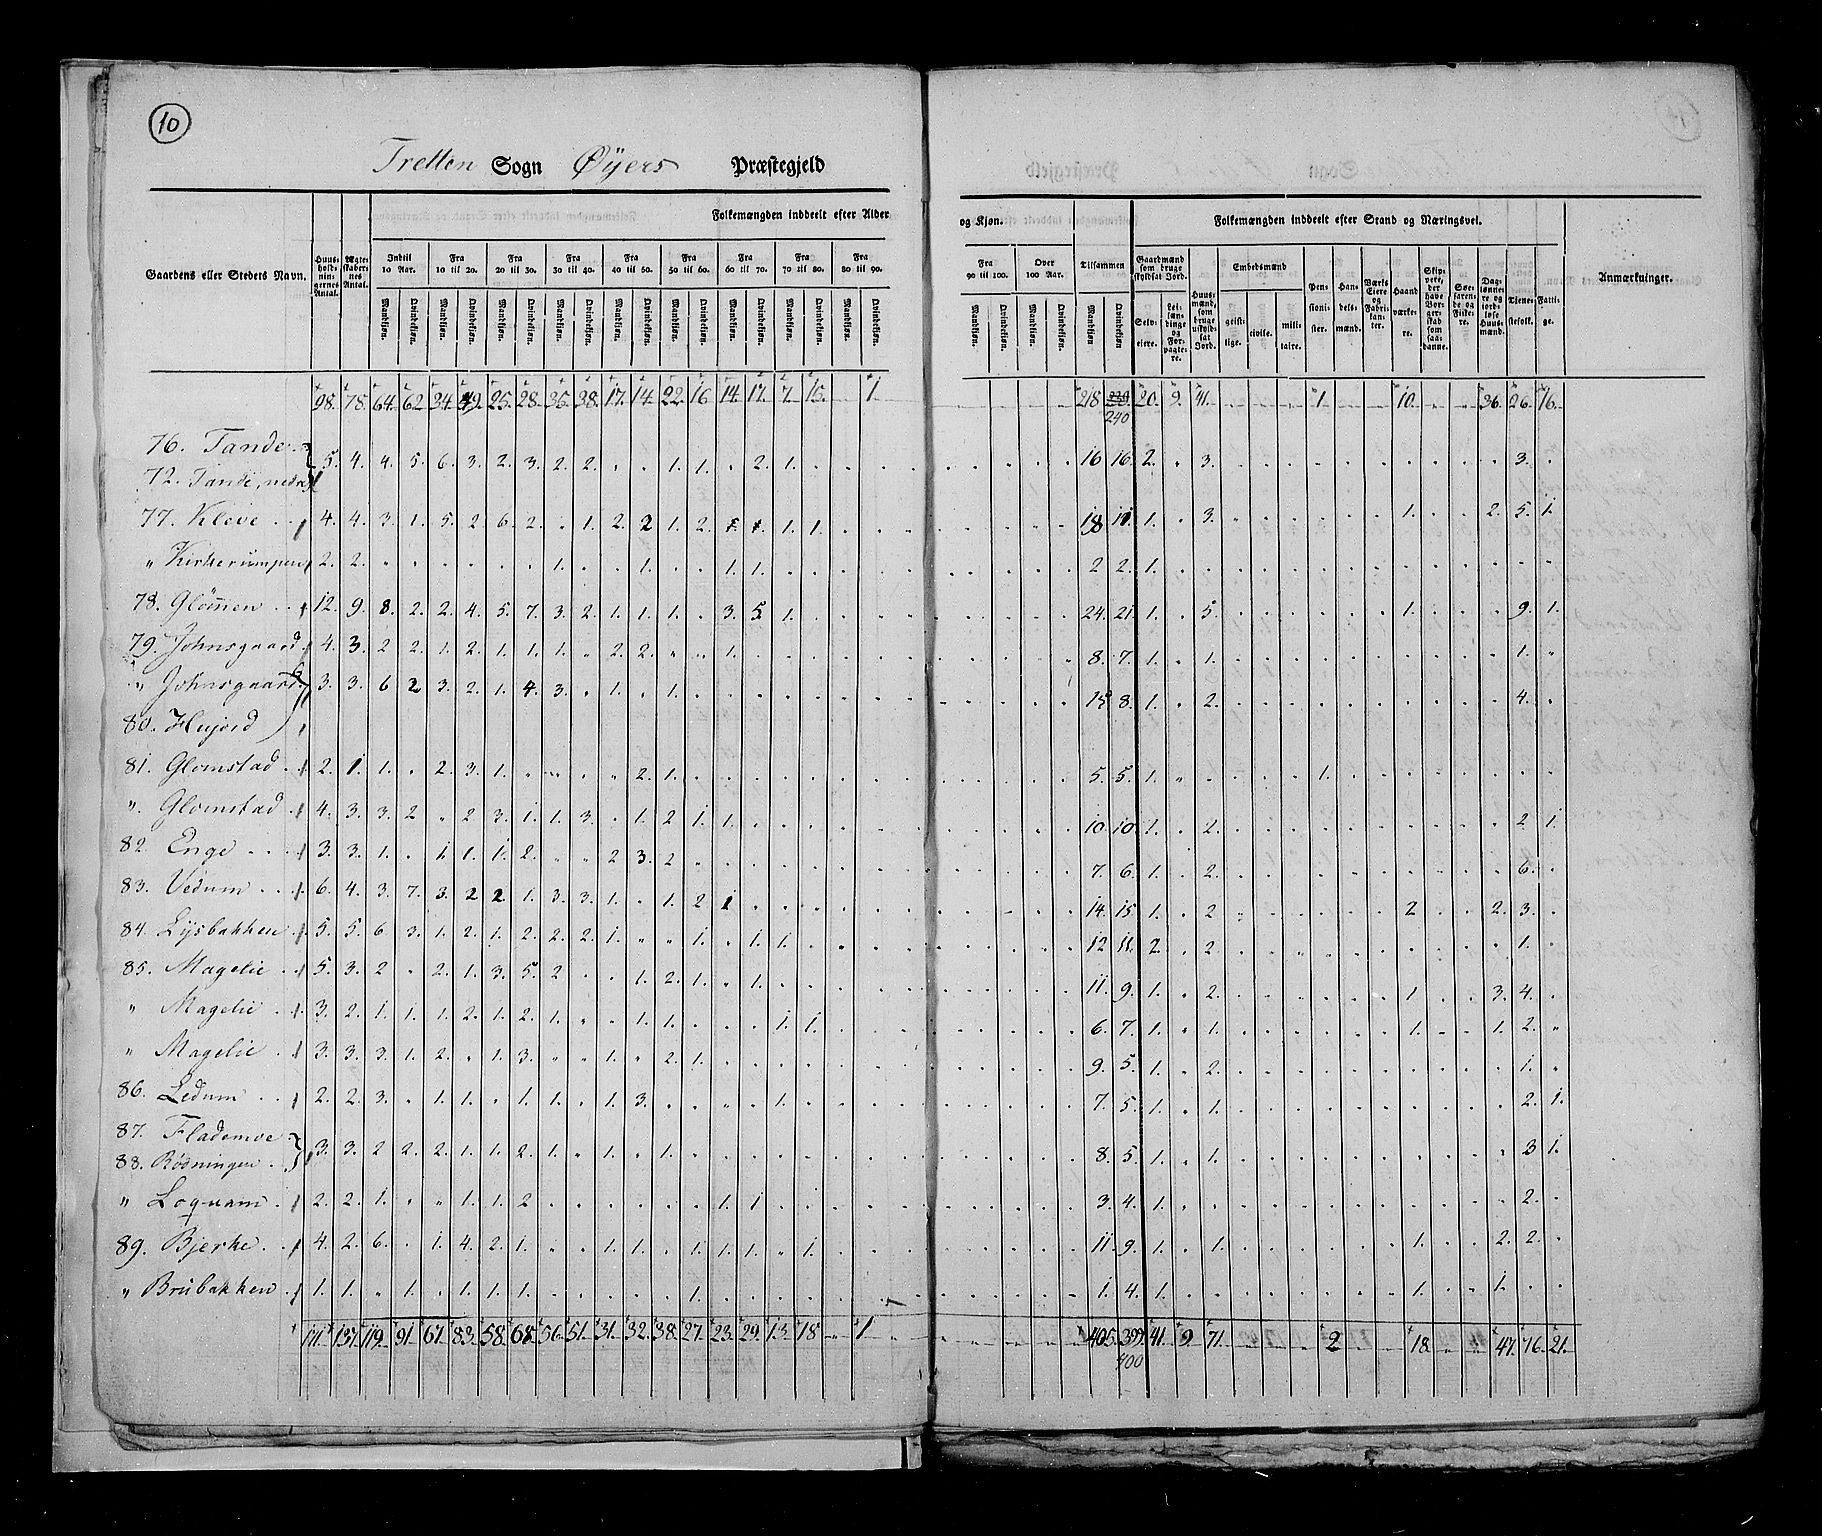 10
Tretten Sogn Øyers Præstegjeld
Folkemængden inddeelt efter Alder og Kjøn. Folkemængden inddeelt efter Stand og Næringsvei.
Gaardens eller Stedets Navn. Huusholdningernes Antal. Ægteskabernes Antal. Indtil 10 Aar. Fra 10 til 20. Fra 20 til 30. Fra 30 til 40. Fra 40 til 50. Fra 50 til 60. Fra 60 til 70. Fra 70 til 80. Fra 80 til 90. Fra 90 til 100. Over 100 Aar. Tilsammen Gaardmænd som bruge skyldsat Jord. Huusmænd, som bruge uskyldsat Jord. Embedsmænd Pensionister. Handelsmænd. Værks Eiere og Fabrikanter. Haandværkere. Skippere, der have Borgerskab som saadanne. Søefarende og Fiskere. Daglønnere og jordløse Huusmænd. Tjenestefolk. Fattige. Anmærkninger.
Mandkjøn. Qvindekjøn. Mandkjøn. Qvindekjøn. Mandkjøn. Qvindekjøn. Mandkjøn. Qvindekjøn. Mandkjøn. Qvindekjøn. Mandkjøn. Qvindekjøn. Mandkjøn. Qvindekjøn. Mandkjøn. Qvindekjøn. Mandkjøn. Qvindekjøn. Mandkjøn. Qvindekjøn. Mandkjøn. Qvindekjøn. Mandkjøn. Qvindekjøn. Selveiere. Leilændinge og Forpagtere. geistlige. civile. militaire.
98. 78. 64. 62. 34. 49. 25. 28. 35. 38. 17. 14. 22. 16. 14. 17. 7. 15. 1. 218 239. 20. 9. 41. 1. 10. 36. 26. 16.
240
76. Tande
5. 4. 4. 5. 6. 3. 2. 3. 2. 2. 1. 1. 2. 1. 16 16. 2. 3. 3.
72. Tande, nedre
77. Kleve 4. 4. 3. 1. 5. 2 6. 2. 1. 2. 2 1. 2. 1. 1. 18 11. 1. 3. 1. 2. 5. 1.
" Kirkerumpen 2. 2. 1. 1. 1. 1. 2 2. 1.
78. Glömen 12. 9. 8. 2. 2. 4. 5. 7. 3. 2. 1. 1. 1. 3. 5. 1. 24. 21. 1. 5. 1. 9. 1.
79. Johnsgaard 4. 3. 2 2. 1. 2. 1. 1. 1. 2. 2. 1. 8. 7. 1. 1. 1.
" Johnsgaard 3. 3. 6 2 3. 2. 1. 4. 3. 1. 1. 15 8. 1. 2. 4.
80. Hujord
81. Glomstad 2. 1. 1. 2. 3. 1. 2. 1. 5. 5. 1. 1.
" Glomstad 4. 3. 3. 2 2 3. 1. 1. 3. 1. 2 1. 1. 10. 10. 1. 2. 2 1.
82. Enge 3. 3. 1. 1. 1. 1. 2. 2 3. 2 7. 6. 1. 2. 6.
83. Vedum 6. 4. 3. 7. 3. 2 2. 1. 3. 3. 1. 1. 2 1 14. 15 1. 2 2 2. 3.
84. Lysbakken 5. 5. 6 3. 1. 2. 1. 2. 2. 2. 1. 1. 1. 1. 12 11. 2. 2 1.
85. Magelie 5. 3. 2 2. 1. 3. 5. 2 1. 2. 1. 1. 11. 9. 1. 2. 1 3. 4.
" Magelie 3. 2. 1. 1. 1. 2. 1. 2. 1. 1. 1. 1. 1. 6. 7. 1. 1. 1. 1. 2.
" Magelie 3. 3. 3. 1. 2. 1. 3. 1. 2. 1. 9. 5. 1. 2. 1.
86. Ledum 2. 2. 3. 1. 1. 1. 1. 1. 3. 1. 7. 5. 1. 1. 2. 1.
87. Flademoe
3. 3. 2 2. 2. 1. 1. 2. 1. 1. 1. 8. 5. 1. 1. 3 1.
88. Rödningen
" Loqnam 2. 2. 1. 1. 1. 2 1. 1 3. 4. 1. 2.
89. Bjerke 4. 2. 6. 1. 4. 2. 1. 1. 1. 1. 1. 1. 1. 11. 9. 1. 1. 1. 2. 2.
" Brubakken 1. 1. 1. 1. 1. 1. 1. 1. 4. 1. 1. 1.
171. 137. 119. 91. 67. 83. 58. 68. 56. 51. 31. 32. 38. 27. 23. 29. 13. 18. 1. 405. 399. 41. 9. 71. 2 18. 47. 76. 21.
400